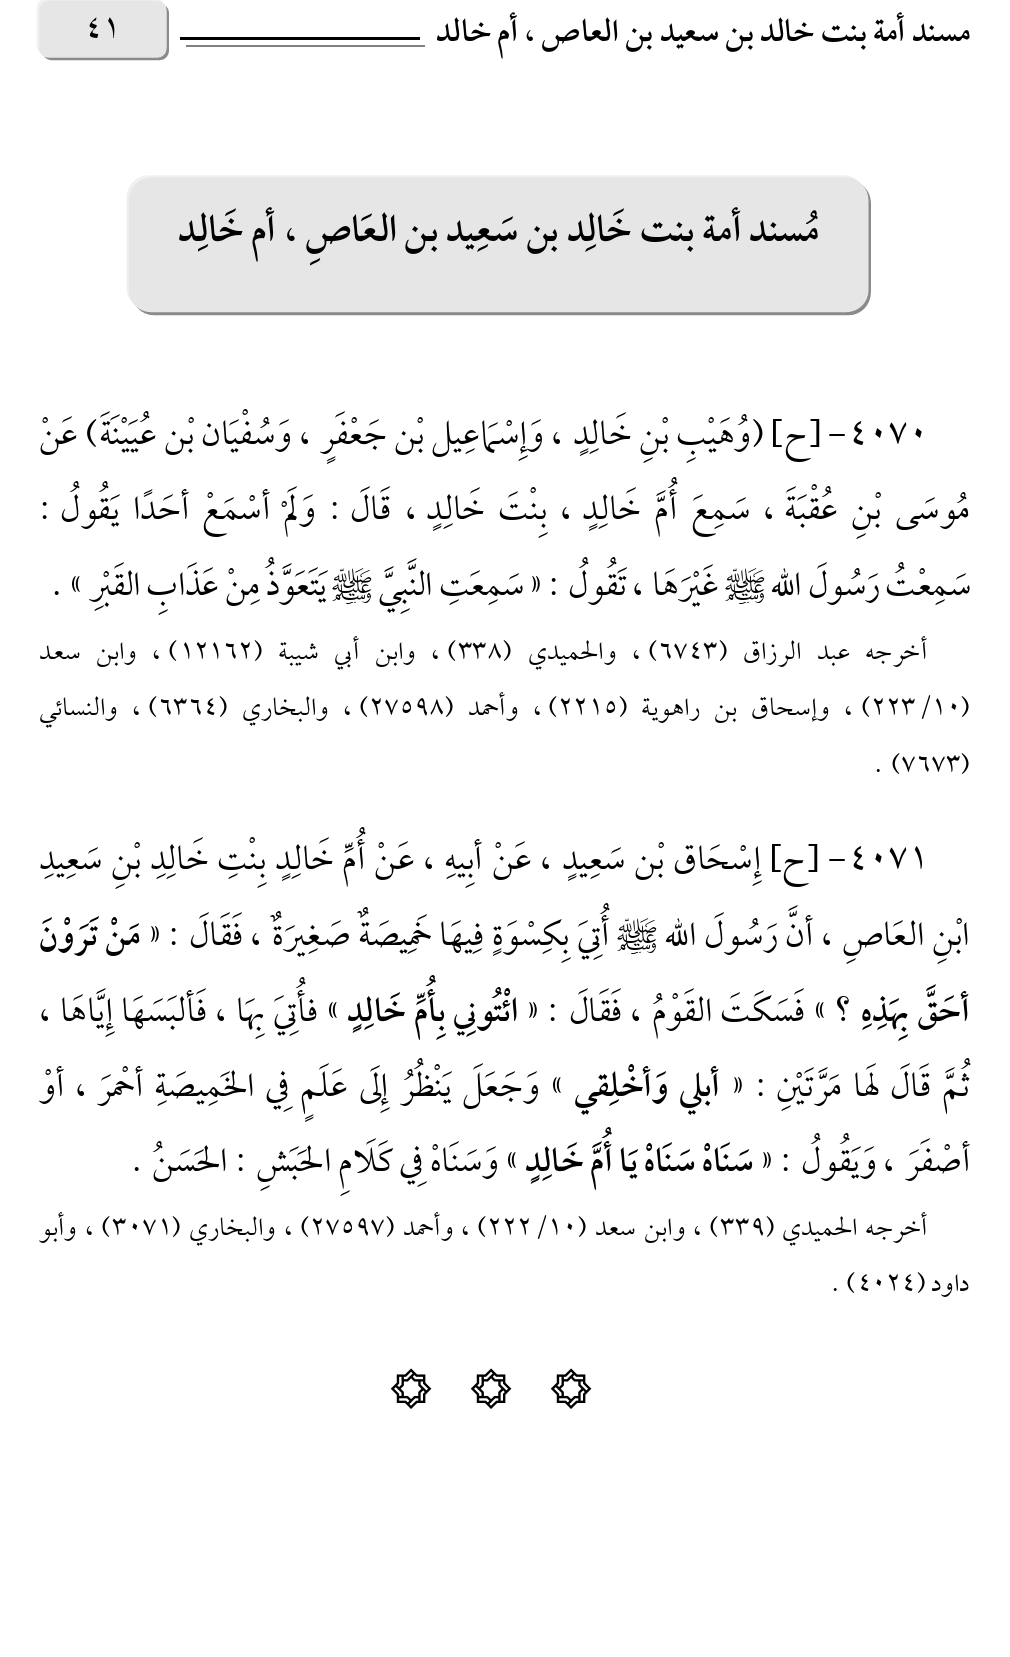 مسند أمة بنت خالد بن سعيد بن العاص ، أم خالد
٤١
مُسند أمة بنت خَالِد بن سَعِيد بن العَاصِ ، أم خَالِد
٤٠٧٠- [ح] (وُهَيْبِ بْنِ خَالِدٍ ، وَإِسْمَاعِيل بْن جَعْفَرٍ ، وَسُفْيَان بْن عُيَيْنَةَ) عَنْ
مُوسَى بْنِ عُقْبَةَ ، سَمِعَ أُمَّ خَالِدٍ ، بِنْتَ خَالِدٍ ، قَالَ : وَلَمْ أسْمَعْ أحَدًا يَقُولُ :
سَمِعْتُ رَسُولَ الله ﷺ غَيْرَهَا ، تَقُولُ : « سَمِعَتِ النَّبِيَّ ﷺ يَتَعَوَّذُ مِنْ عَذَابِ القَبْرِ » .
أخرجه عبد الرزاق (٦٧٤٣) ، والحميدي (٣٣٨) ، وابن أبي شيبة (١٢١٦٢) ، وابن سعد
(١٠/ ٢٢٣) ، وإسحاق بن راهوية (٢٢١٥) ، وأحمد (٢٧٥٩٨) ، والبخاري (٦٣٦٤) ، والنسائي
(٧٦٧٣) .
٤٠٧١- [ح] إِسْحَاق بْن سَعِيدٍ ، عَنْ أبِيهِ ، عَنْ أُمِّ خَالِدٍ بِنْتِ خَالِدِ بْنِ سَعِيدِ
ابْنِ العَاصِ ، أنَّ رَسُولَ الله ﷺ أُتِيَ بِكِسْوَةٍ فِيهَا خَمِيصَةٌ صَغِيرَةٌ ، فَقَالَ : « مَنْ تَرَوْنَ
أحَقَّ بِهَذِهِ ؟ » فَسَكَتَ القَوْمُ ، فَقَالَ : « ائْتُونِي بِأُمِّ خَالِدٍ » فأُتِيَ بِهَا ، فَألبَسَهَا إِيَّاهَا ،
ثُمَّ قَالَ لَهَا مَرَّتَيْنِ : « أبلي وَأخْلِقي » وَجَعَلَ يَنْظُرُ إِلَى عَلَمٍ فِي الخَمِيصَةِ أحْمرَ ، أوْ
أصْفَرَ ، وَيَقُولُ : « سَنَاهْ سَنَاهْ يَا أُمَّ خَالِدٍ » وَسَنَاهْ فِي كَلَامِ الحَبَشِ : الحَسَنُ .
أخرجه الحميدي (٣٣٩) ، وابن سعد (١٠/ ٢٢٢) ، وأحمد (٢٧٥٩٧) ، والبخاري (٣٠٧١) ، وأبو
داود (٤٠٢٤) .